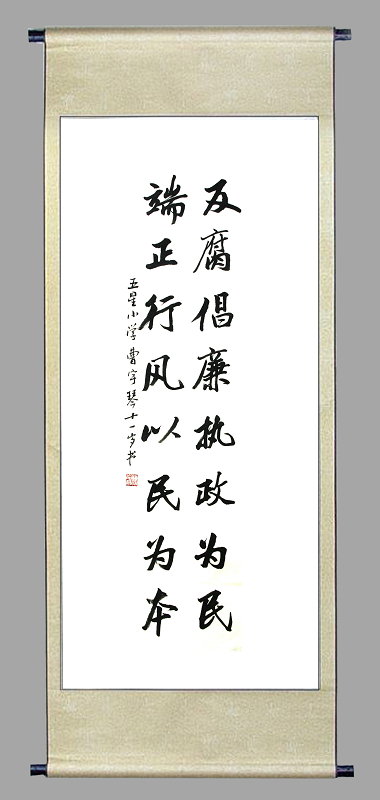 反腐倡廉执政为民
端正行风以民为本
五星小学曹宇琴十一岁书